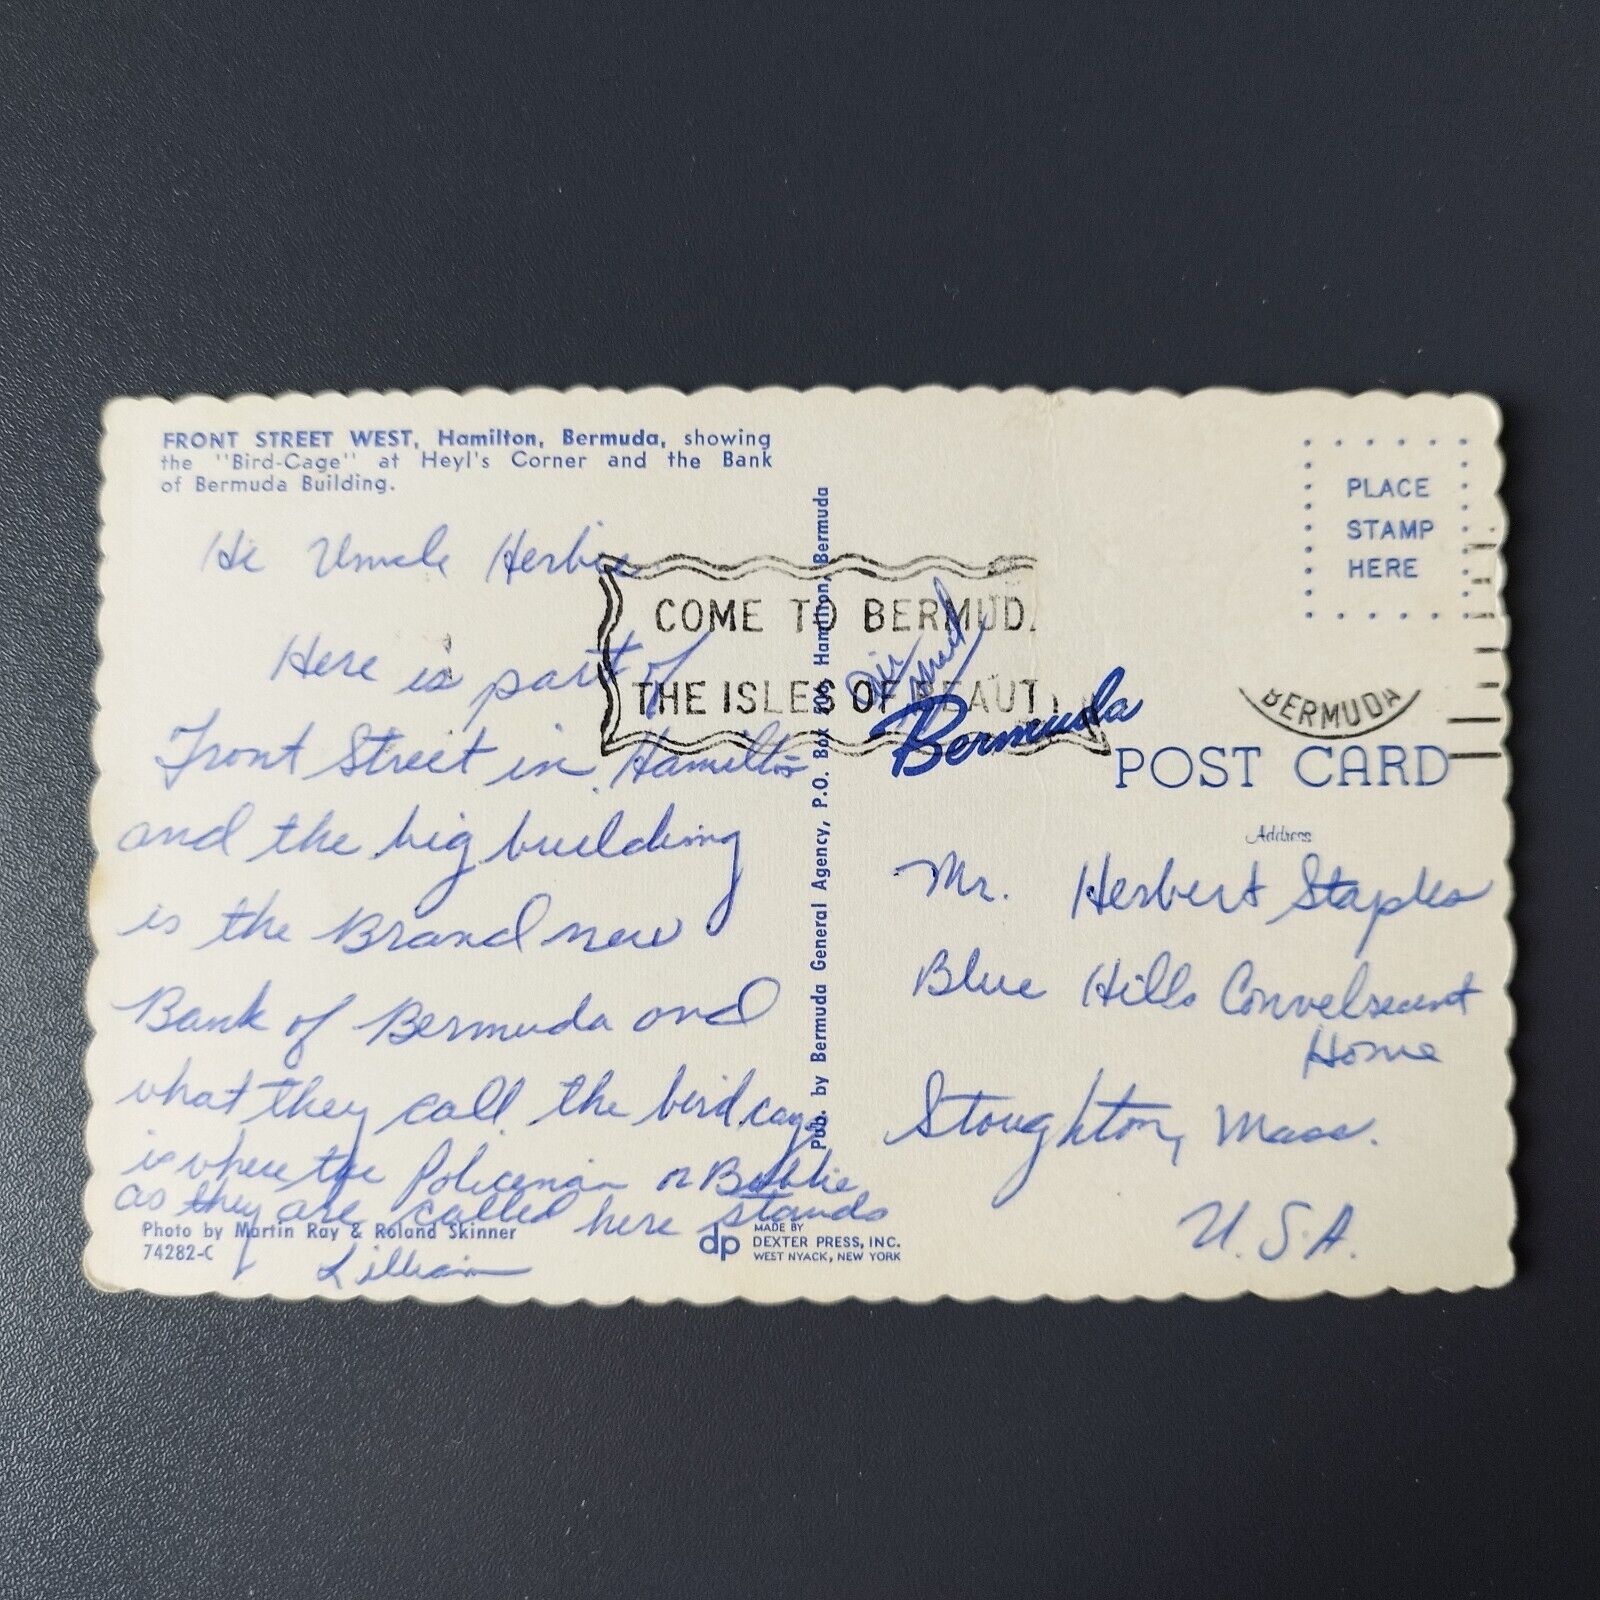 FRONT STREET WEST, Hamilton, Bermuda, showing
the "Bird-Cage" at Heyl's Corner and the Bank
of Bermuda Building.
Hi Uncle Herbie
Here is part of
Front Street in Hamilton
and the big building
is the Brand new
Bank of Bermuda and
what they call the bird cage
is where the Policeman or Bobbie
as they are called here stands
Lillian
Photo by Martin Ray & Roland Skinner
74282-C
Pub. by Bermuda General Agency, P.O. Box Hamilton, Bermuda
dp
MADE BY
DEXTER PRESS, INC.
WEST NYACK, NEW YORK
COME TO BERMUDA
THE ISLES OF BEAUTY
Air Mail
Bermuda
POST CARD
PLACE
STAMP
HERE
BERMUDA
Address
Mr. Herbert Staples
Blue Hills Convelscent
Home
Stoughton, Mass.
U.S.A.